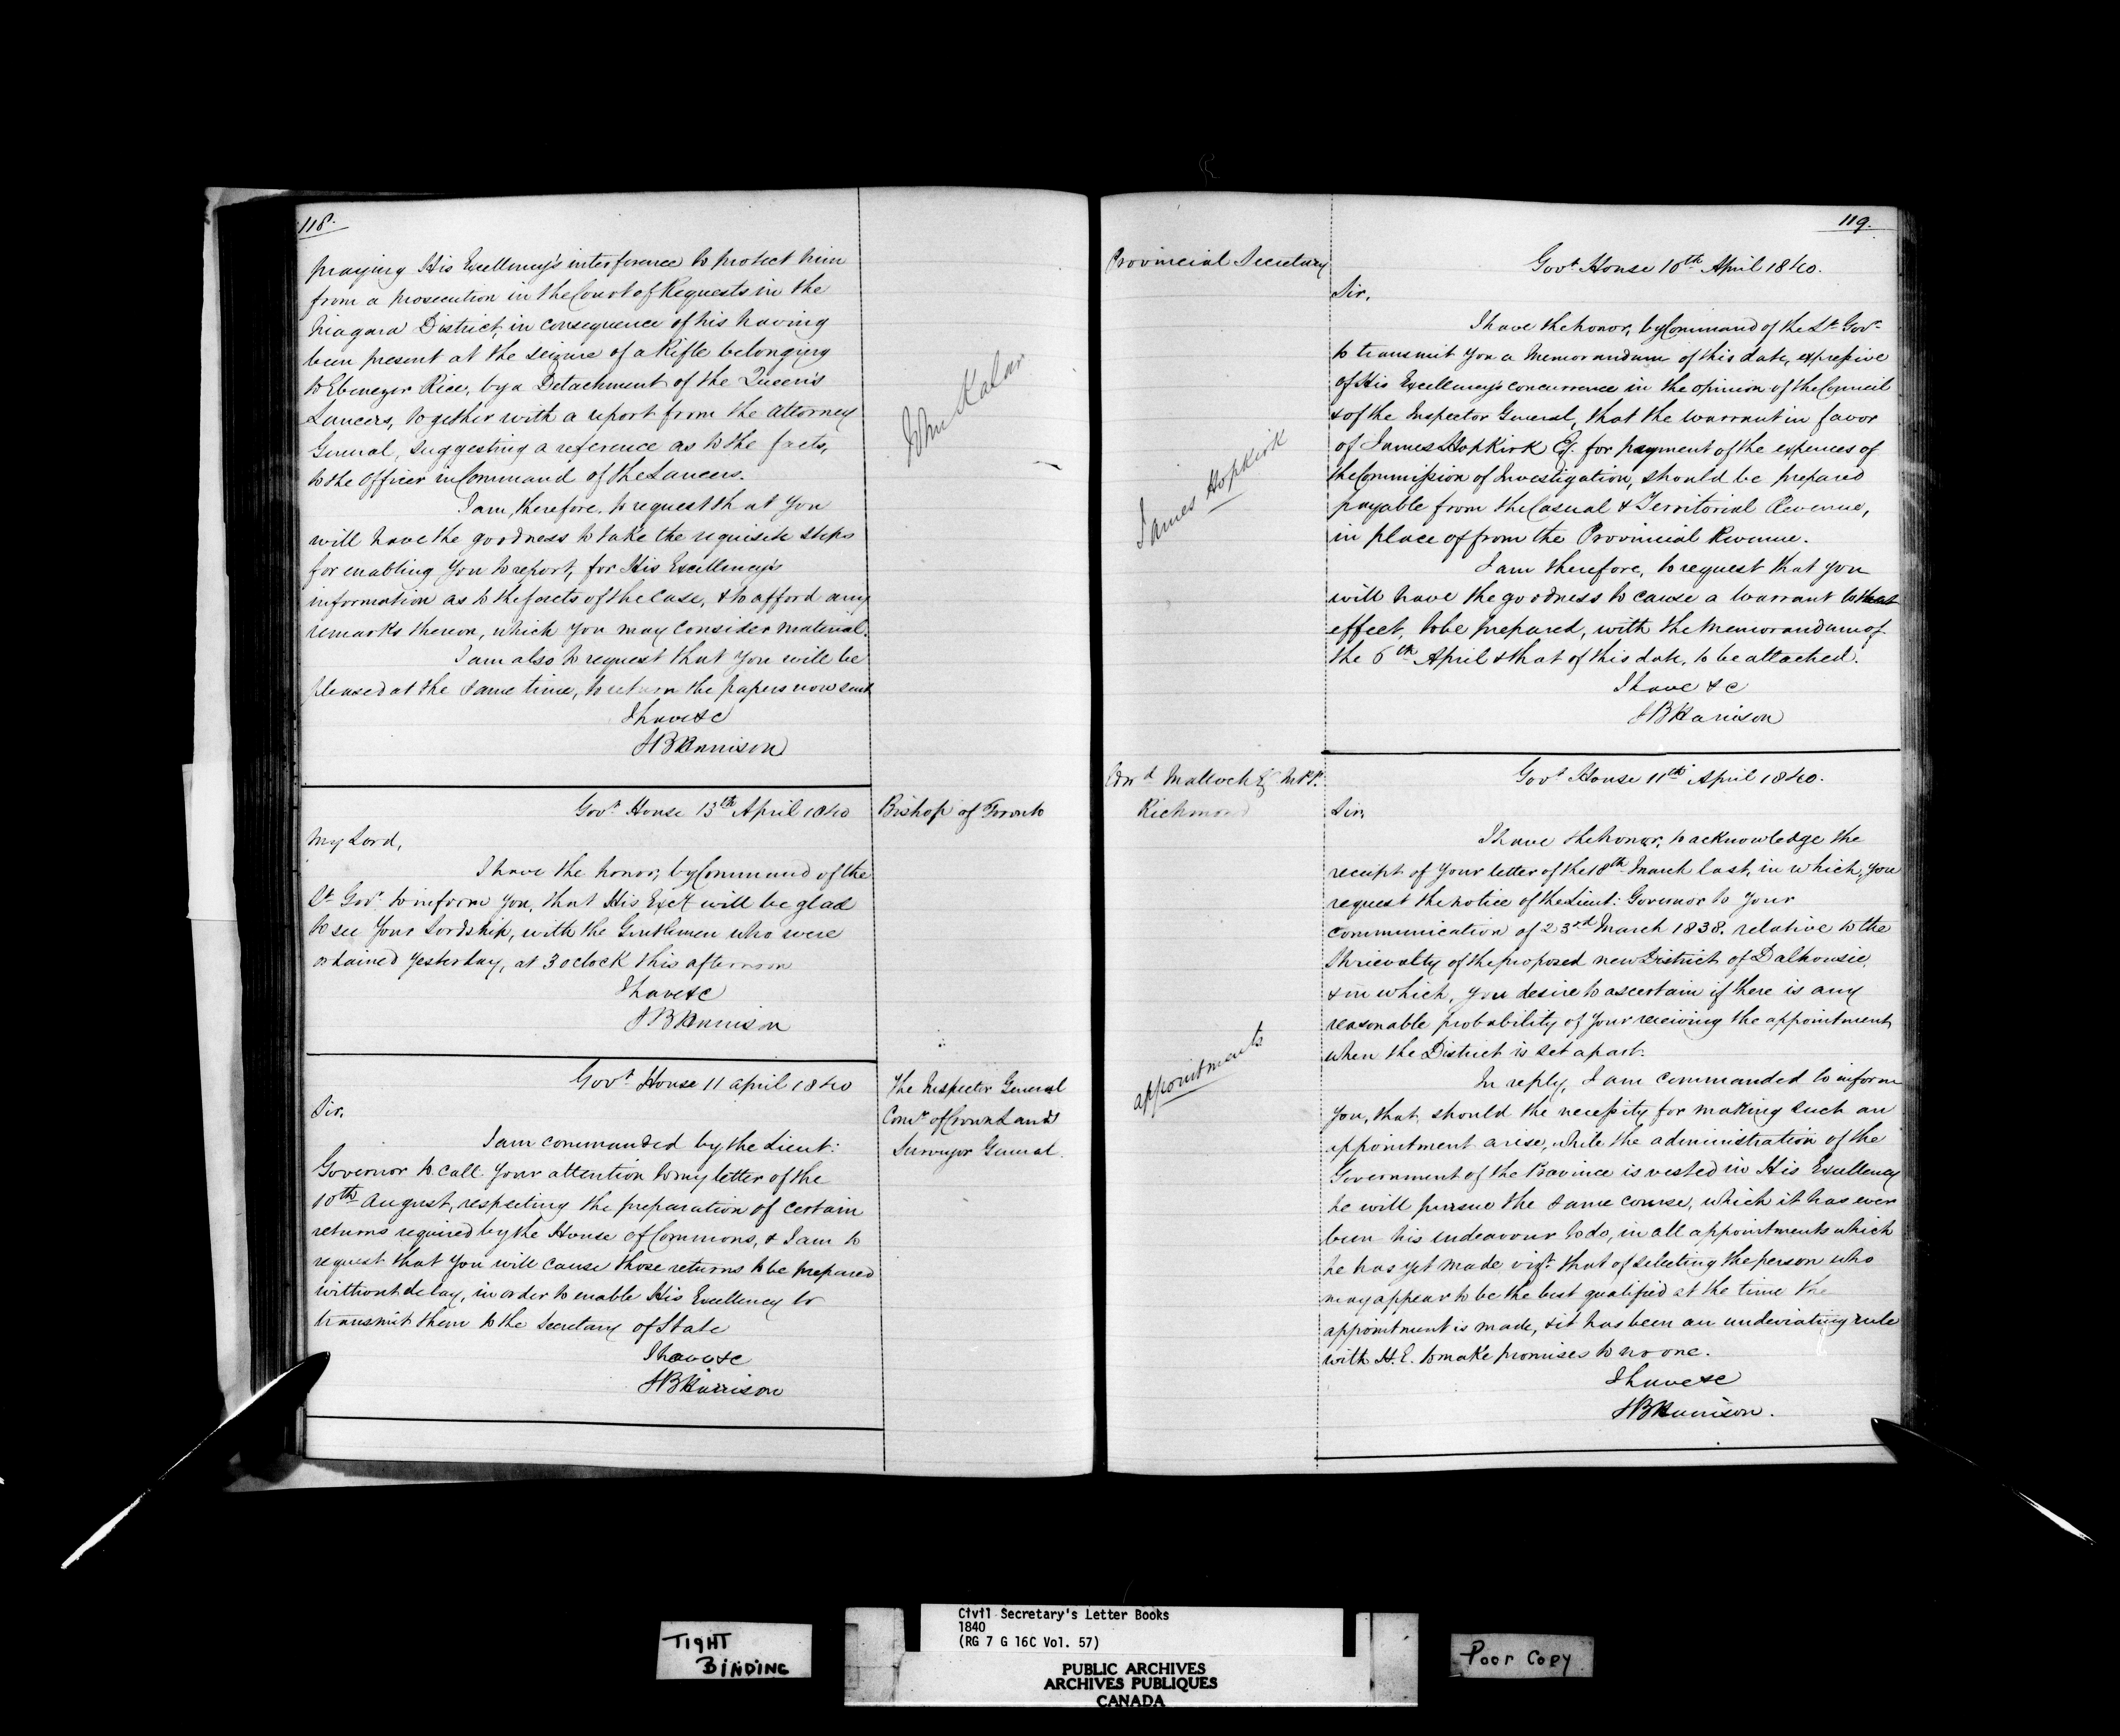 118.
praying His Excellency's interference to protect him
from a prosecution in the Court of Requests in the
Niagara District, in consequence of his having
been present at the seizure of a Rifle belonging
to Ebenezer Rice, by a Detachment of the Queen's
Lancers, together with a report from the Attorney
General, suggesting a reference as to the facts,
to the Officer in Command of the Lancers.
I am, therefore, to request that you
will have the goodness to take the requisite steps
for enabling you to report, for His Excellency's
information as to the facts of the case, & to afford any
remarks thereon, which you may consider material.
I am also to request that you will be
pleased at the same time, to return the papers now sent
I have &c
SBHarrison
John Kalar
Govt. House 13th April 1840
Bishop of Toronto
My Lord,
I have the honor, by Command of the
Lt Govr. to inform you, that His Excy will be glad
to see Your Lordship, with the Gentlemen who were
ordained yesterday, at 3 oclock this afternoon
I have &c
SBHarrison
Govt. House 11 april 1840
The Inspector General
Comr of Crown Lands
Surveyor General.
Sir,
I am commanded by the Lieut:
Governor to call your attention to my letter of the
10th August, respecting the preparation of certain
returns required by the House of Commons, & I am to
request that you will cause those returns to be prepared
without delay, in order to enable His Excellency to
transmit them to the Secretary of State
I have &c
SBHarrison
119.
Provincial Secretary
Govt. House 10th April 1840.
Sir,
I have the honor, by Command of the Lt. Govr.
to transmit you a Memorandum of this date, expressive
of His Excellency's concurrence in the opinion of the Council
& of the Inspector General, that the warrant in favor
of James Hopkirk Esq. for payment of the expences of
the Commission of Investigation, should be prepared
payable from the Casual & Territorial Revenue,
in place of from the Provincial Revenue.
I am therefore, to request that you
will have the goodness to cause a warrant to that
effect, to be prepared, with the Memorandum of
the 6th April & that of this date, to be attached.
I have &c
SBHarrison
James Hopkirk
Edwd Malloch Esq M.P.P.
Richmond
Govt. House 11th April 1840.
Sir,
I have the honor, to acknowledge the
receipt of your letter of the 18th March last, in which, you
request the notice of the Lieut: Governor to your
communication of 23rd March 1838. relative to the
Shrievalty of the proposed new District of Dalhousie,
& in which, you desire to ascertain if there is any
reasonable probability of your receiving the appointment
when the District is set apart.
In reply, I am commanded to inform
you, that, should the necessity for making such an
appointment arise, while the administration of the
Government of the Province is vested in His Excellency
he will pursue the same course, which it has ever
been his endeavour to do, in all appointments which
he has yet made vizt. that of selecting the person who
may appear to be the best qualified at the time the
appointment is made, & it has been an undeviating rule
with H.E. to make promises to no one.
I have &c
SBHarrison.
appointments
TIGHT
BINDING
Civil Secretary's Letter Books
1840
(RG 7 G 16C Vol. 57)
PUBLIC ARCHIVES
ARCHIVES PUBLIQUES
CANADA
Poor Copy